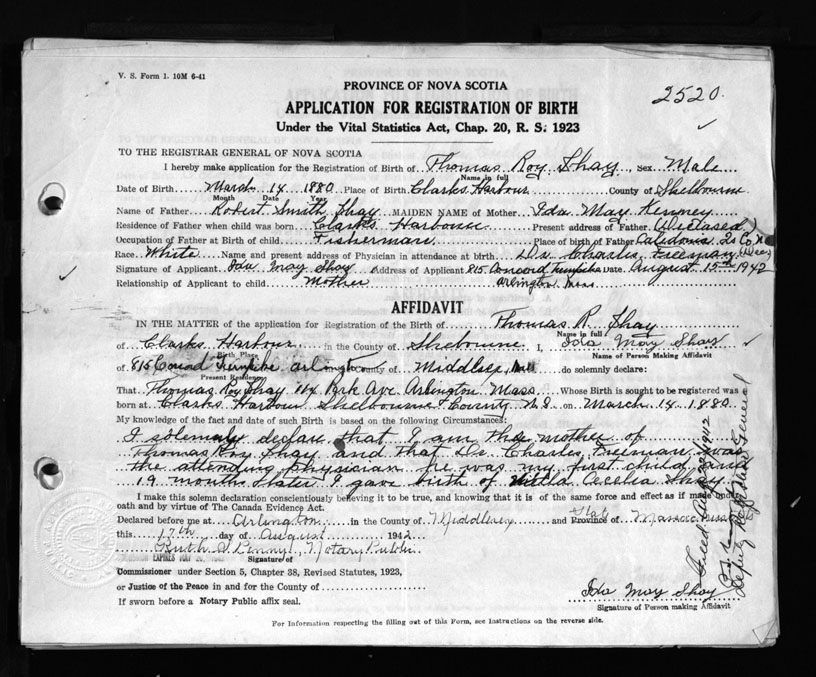 V. S. Form 1. 10M 6-41
PROVINCE OF NOVA SCOTIA
2520.
APPLICATION FOR REGISTRATION OF BIRTH
Under the Vital Statistics Act, Chap. 20, R. S. 1923
TO THE REGISTRAR GENERAL OF NOVA SCOTIA
I hereby make application for the Registration of Birth of Thomas Roy Shay, Sex Male
Name in full
Date of Birth March 14 1880 Place of Birth Clarks Harbour County of Shelbourne
Month Date Year
Name of Father Robert Smith Shay MAIDEN NAME of Mother Ida May Kenney
Residence of Father when child was born Clarks Harbour Present address of Father (Deceased)
Occupation of Father at Birth of child Fisherman Place of birth of Father Caledonia
Race White Name and present address of Physician in attendance at birth Dr. Charles Freeman (Dec)
Signature of Applicant Ida May Shay Address of Applicant 815 Concord Turnpike Date August 15th 1942
Relationship of Applicant to child Mother Arlington Mass
AFFIDAVIT
IN THE MATTER of the application for Registration of the Birth of Thomas R. Shay
Name in full
of Clarks Harbour in the County of Shelbourne I, Ida May Shay
Birth Place Name of Person Making Affidavit
of 815 Concord Turnpike Arlington County of Middlesex, Mass do solemnly declare:
Present Residence
That Thomas Roy Shay 114 Park Ave Arlington Mass Whose Birth is sought to be registered was
born at Clarks Harbour Shelbourne County N.S. on March 14 1880
My knowledge of the fact and date of such Birth is based on the following Circumstances:
I solemnly declare that I am the mother of
Thomas Roy Shay and that Dr Charles Freeman was
the attending physician he was my first child, and
19 months later I gave birth of Cecelia Shay
I make this solemn declaration conscientiously believing it to be true, and knowing that it is of the same force and effect as if made under
oath and by virtue of The Canada Evidence Act.
Declared before me at Arlington in the County of Middlesex State and Province of Massachusetts
this 17th day of August 1942
Ruth A Penny, Notary Public
Signature of
Commissioner under Section 5, Chapter 38, Revised Statutes, 1923,
or Justice of the Peace in and for the County of
Ida May Shay
If sworn before a Notary Public affix seal.
Signature of Person making Affidavit
For Information respecting the filling out of this Form, see Instructions on the reverse side.
Filed Aug 22/1942
Deputy Registrar General